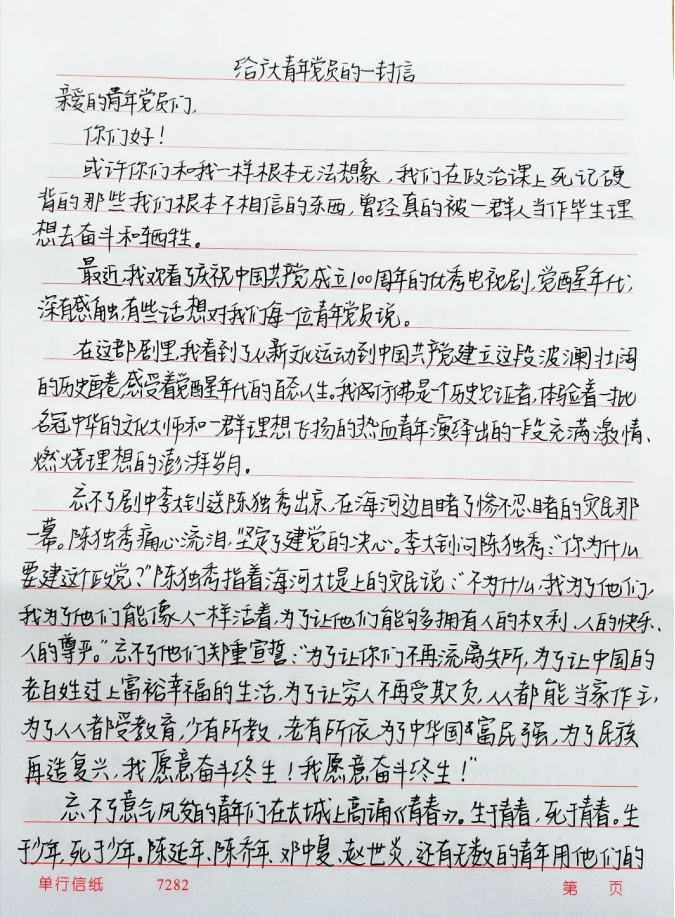 给广大青年党员的一封信
亲爱的青年党员们,
你们好!
或许你们和我一样根本无法想象,我们在政治课上死记硬
背的那些我们根本不相信的东西,曾经真的被一群人当作毕生理
想去奋斗和牺牲。
最近,我观看了庆祝中国共产党成立100周年的优秀电视剧,觉醒年代,
深有感触,有些话想对我们每一位青年党员说。
在这部剧里,我看到了从新文化运动到中国共产党建立这段波澜壮阔
的历史画卷,感受着觉醒年代的百态人生。我仿佛是个历史见证者,体验着一批
名冠中华的文化大师和一群理想飞扬的热血青年演绎出的一段充满激情、
燃烧理想的澎湃岁月。
忘不了剧中李大钊送陈独秀出京,在海河边目睹了惨不忍睹的灾民那
一幕。陈独秀痛心流泪,坚定了建党的决心。李大钊问陈独秀:“你为什么
要建这个政党?”陈独秀指着海河大堤上的灾民说:“不为什么,我为了他们,
我为了他们能像人一样活着,为了让他们能够多拥有人的权利、人的快乐、
人的尊严。”忘不了他们郑重宣誓:“为了让你们不再流离失所,为了让中国的
老百姓过上富裕幸福的生活,为了让穷人不再受欺负,人人都能当家作主,
为了人人都受教育,少有所教,老有所依,为了中华国富民强,为了民族
再造复兴,我愿意奋斗终生!我愿意奋斗终生!”
忘不了意气风发的青年们在长城上高诵《青春》。生于青春,死于青春。生
于少年,死于少年。陈延年、陈乔年、邓中夏、赵世炎,还有无数的青年用他们的
单行信纸 7282 第 页